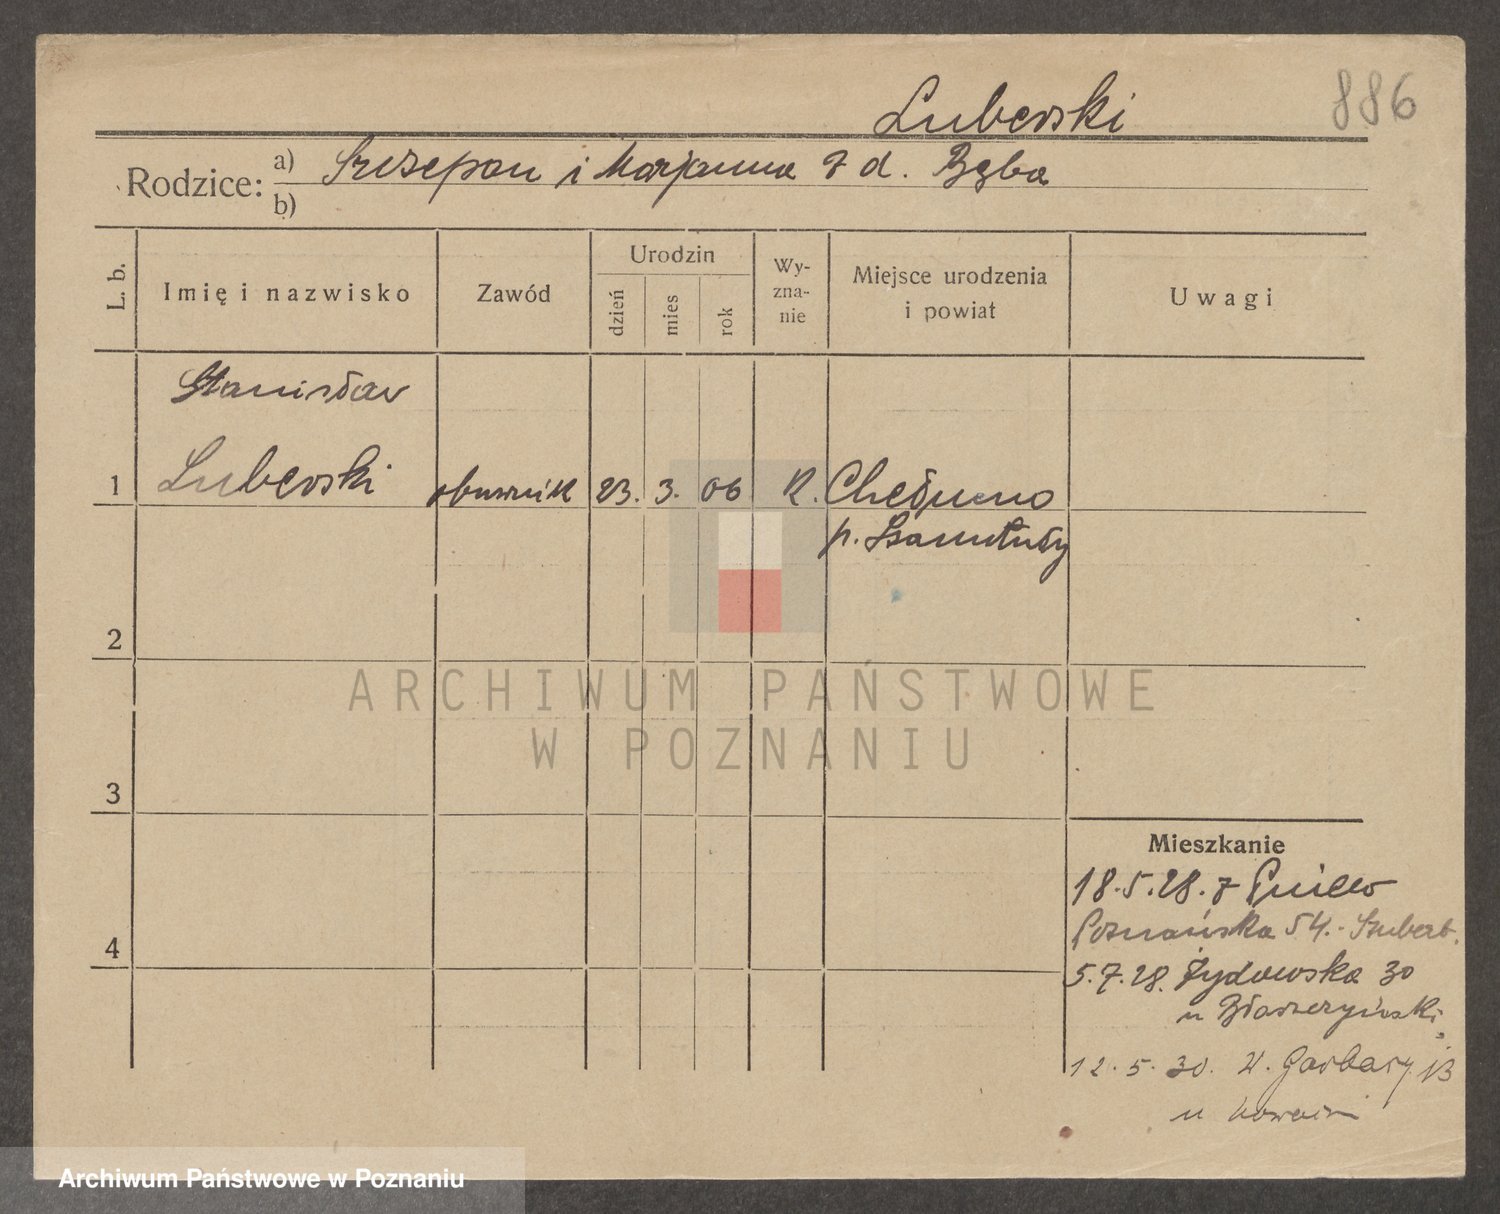 Luberski
886
Rodzice: a) Szczepan i Marjanna z d. Bęba
b)
L. b.
Imię i nazwisko
Zawód
Urodzin
dzień
mies
rok
Wy-
zna-
nie
Miejsce urodzenia
i powiat
Uwagi
Stanisław
1 Luberski obuwnik 23. 3. 06 R. Chełmno
p. Szamotuły
2
3
4
Mieszkanie
18.5.28. z Pniew
Poznańska 54. - Szubert.
5.7.28. Żydowska 30
u Błaszczyński
12.5.30. W. Garbary 13
u
ARCHIWUM PAŃSTWOWE
W POZNANIU
Archiwum Państwowe w Poznaniu